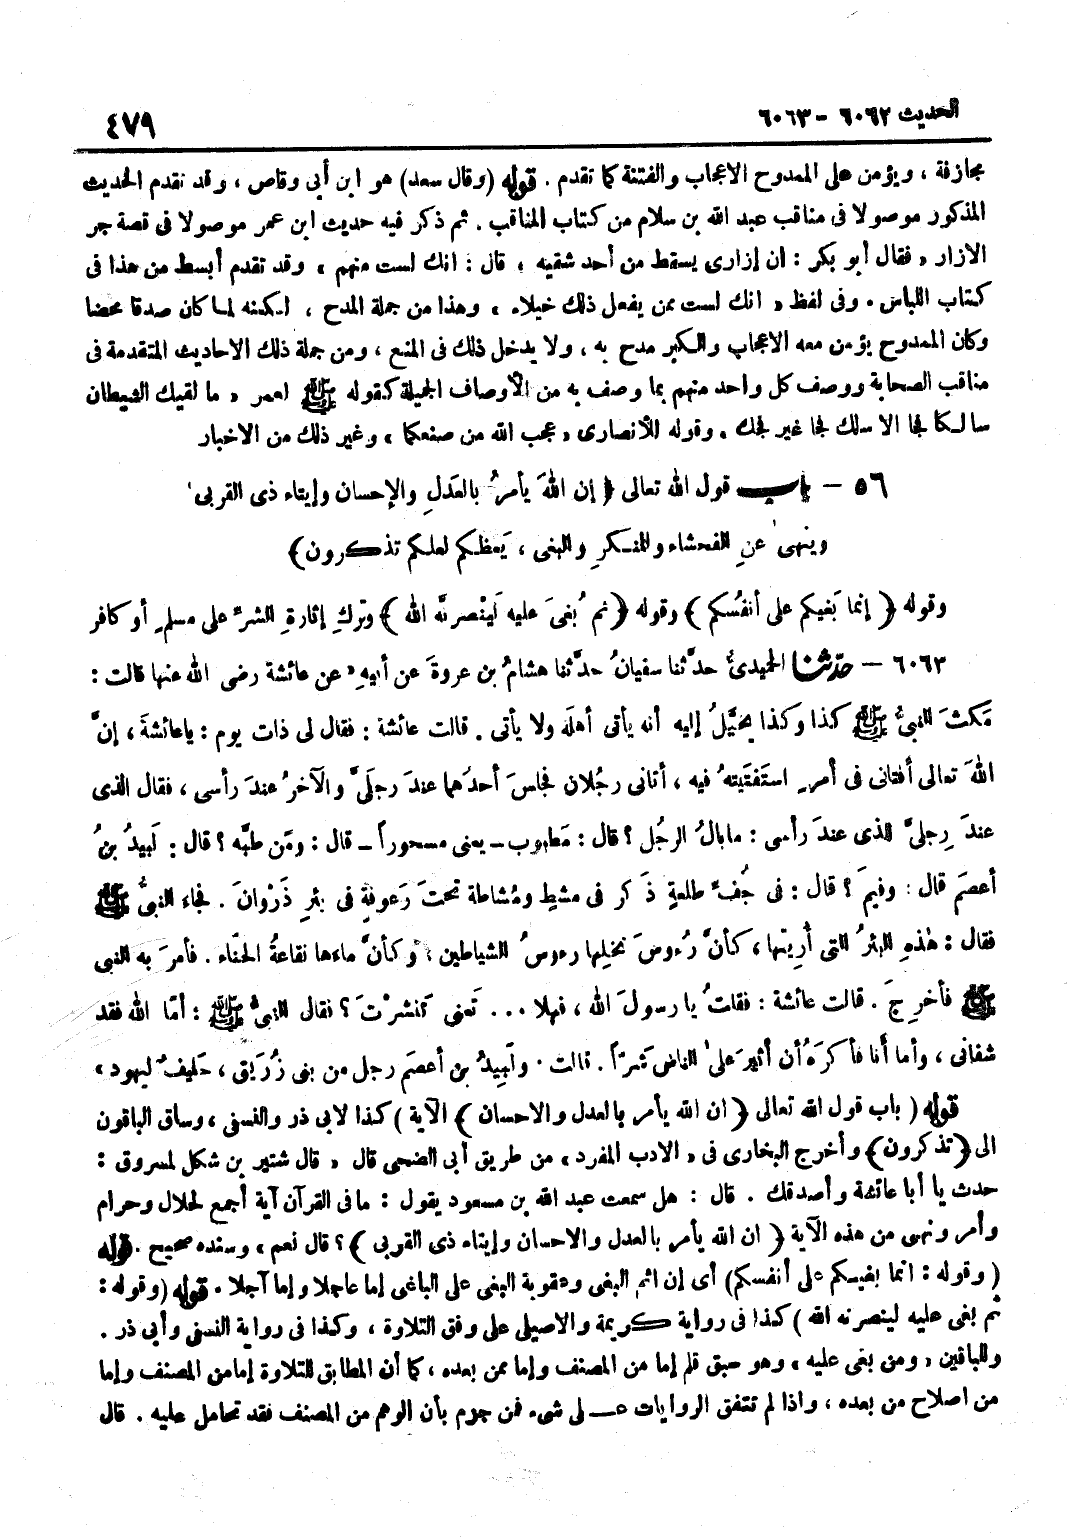 الحديث ٦٠٦٢ – ٦٠٦٣
٤٧٩
مجازفة ، ويؤمن على الممدوح الاعجاب والفتنة كما تقدم . قوله (وقال سعد) هو ابن أبى وقاص ، وقد تقدم الحديث
المذكور موصولا فى مناقب عبد الله بن سلام من كتاب المناقب . ثم ذكر فيه حديث ابن عمر موصولا فى قصة جر
الازار « فقال أبو بكر : ان إزارى يسقط من أحد شقيه ، قال : انك لست منهم » وقد تقدم أبسط من هذا فى
كتاب اللباس . وفى لفظ « انك لست ممن يفعل ذلك خيلاء » وهذا من جملة المدح ، لكنه لما كان صدقا محضا
وكان الممدوح يؤمن معه الاعجاب والكبر مدح به ، ولا يدخل ذلك فى المنع ، ومن جملة ذلك الاحاديث المتقدمة فى
مناقب الصحابة ووصف كل واحد منهم بما وصف به من الأوصاف الجميلة كقوله ﷺ لعمر « ما لقيك الشيطان
سالكا فجا الا سلك فجا غير فجك » وقوله للأنصارى « عجب الله من صنعكما » وغير ذلك من الاخبار
٥٦ – باب قول الله تعالى ﴿ إن اللهَ يأمرُ بالعَدلِ والإحسان وإيتاء ذى القربى
وينهىٰ عنِ الفحشاء والمنكرِ والبغى ، يَعظكم لعلكم تذكرون ﴾
وقوله ﴿ إنما بَغيكم على أنفُسكم ﴾ وقوله ﴿ ثم بُغىَ عليه لَينْصرنَّه الله ﴾ وتركِ إثارةِ الشرِّ على مسلمٍ أو كافر
٦٠٦٣ – حدّثنا الحميدىُّ حدَّثنا سفيانُ حدَّثنا هشامُ بن عروةَ عن أبيهِ « عن عائشة رضى الله عنها قالت :
مَكثَ النبىُّ ﷺ كذا وكذا يخيَّلُ إليه أنه يأتى أهلَه ولا يأتى . قالت عائشة : فقال لى ذات يوم : ياعائشةَ ، إنَّ
اللهَ تعالى أفتانى فى أمرٍ استَفتَيتهُ فيه ، أتانى رجُلان فجلسَ أحدُهما عندَ رجلَىَّ والآخرُ عندَ رأسى ، فقال الذى
عندَ رِجلىَّ للذى عندَ رأسى : مابالُ الرجُل ؟ قال : مَطبوب – يعنى مسحوراً – قال : ومَن طبَّه ؟ قال : لَبيدُ بنُ
أعصمَ قال : وفيمَ ؟ قال : فى جُفِّ طلعةٍ ذَكر فى مشطٍ ومُشاطة تحتَ رَعوفةٍ فى بئرِ ذَرْوانَ . فجاء النبىُّ ﷺ
فقال : هٰذهِ البئرُ التى أُريتُها ، كأنَّ رُءوسَ نخلِها رءوسُ الشياطين ، وكأنَّ ماءها نقاعةُ الحنّاء . فأمرَ به النبى
ﷺ فأُخرِجَ . قالت عائشة : فقلتُ يا رسولَ الله ، فهلا ... تَعنى تَنشرْتَ ؟ فقال النبىُّ ﷺ : أمّا الله فقد
شفانى ، وأما أنا فأكرَهُ أن أُثيرَ علىٰ الناسِ شرّاً . قالت : ولَبيدُ بن أعصَم رجل من بنى زُرَيق ، حَليفٌ ليهود »
قوله ( باب قول الله تعالى ﴿ ان الله يأمر بالعدل والاحسان ﴾ الآية ) كذا لابى ذر والنسفى ، وساق الباقون
الى ﴿ تذكرون ﴾ وأخرج البخارى فى « الادب المفرد » من طريق أبى الضحى قال « قال شتير بن شكل لمسروق :
حدث يا أبا عائشة وأصدقك . قال : هل سمعت عبد الله بن مسعود يقول : ما فى القرآن آية أجمع لحلال وحرام
وأمر ونهى من هذه الآية ﴿ ان الله يأمر بالعدل والاحسان وإيتاء ذى القربى ﴾ ؟ قال نعم » وسنده صحيح . قوله
( وقوله : انما بغيكم على أنفسكم ) أى إن اثم البغى وعقوبة البغى على الباغى إما عاجلا وإما آجلا . قوله ( وقوله :
ثم بغى عليه لينصرنه الله ) كذا فى رواية كريمة والاصيلى على وفق التلاوة ، وكذا فى رواية النسفى وأبى ذر .
وللباقين « ومن بغى عليه » وهو سبق قلم إما من المصنف وإما ممن بعده ، كما أن المطابق للتلاوة إما من المصنف وإما
من اصلاح من بعده ، واذا لم تتفق الروايات على شىء فمن جزم بأن الوهم من المصنف فقد تحامل عليه . قال